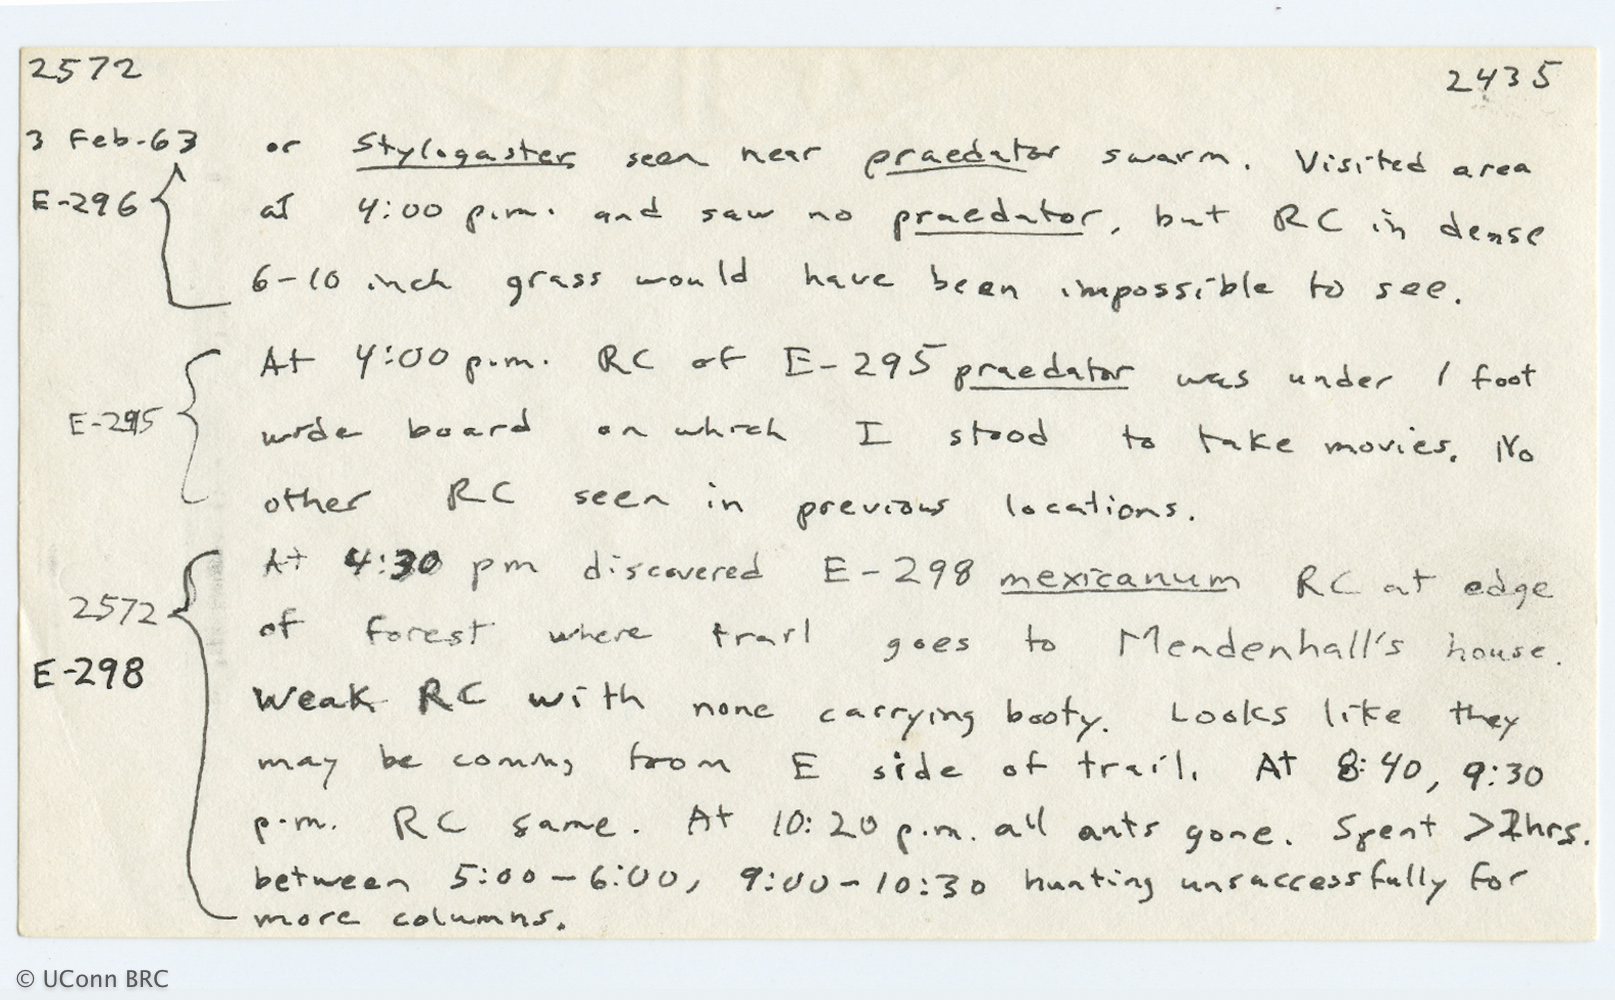 2572 2435
3 Feb-63 or Stylogaster seen near praedator swarm. Visited area
E-296 at 4:00 p.m. and saw no praedator, but RC in dense
6-10 inch grass would have been impossible to see.
At 4:00 p.m. RC of E-295 praedator was under 1 foot
E-295 wide board on which I stood to take movies. No
other RC seen in previous locations.
At 4:30 pm discovered E-298 mexicanum RC at edge
2572 of forest where trail goes to Mendenhall's house.
E-298 Weak RC with none carrying booty. Looks like they
may be coming from E side of trail. At 8:40, 9:30
p.m. RC same. At 10:20 p.m. all ants gone. Spent > hrs.
between 5:00-6:00, 9:00-10:30 hunting unsuccessfully for
more columns.
© UConn BRC